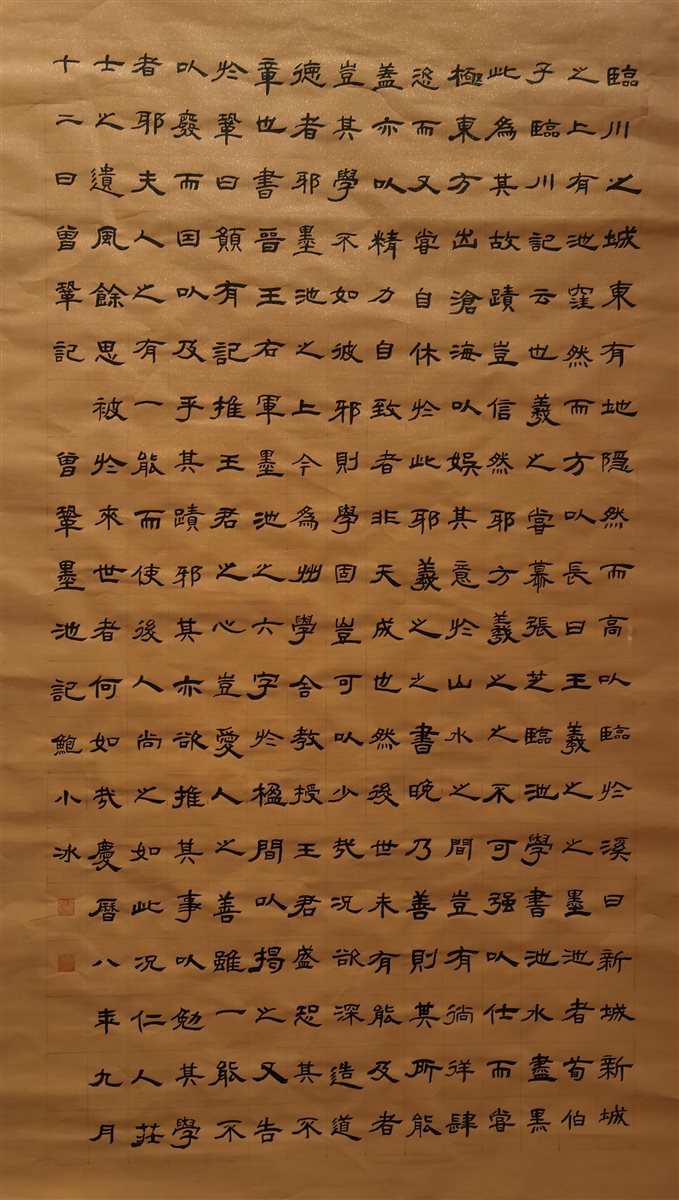 臨川之城東有地隱然而高以臨於溪曰新城新城
之上有池窪然而方以長曰王羲之之墨池者荀伯
子臨川記云也羲之嘗慕張芝臨池學書池水盡黑
此為其故蹟豈信然耶方羲之之不可强以仕而嘗
極東方出滄海以娛其意於山水之間豈有徜徉肆
恣而又嘗自休於此耶羲之之書晚乃善則其所能
蓋亦以精力自致者非天成也然後世未有能及者
豈其學不如彼邪則學固豈可以少哉況欲深造道
德者耶墨池之上今為州學舍教授王君盛恐其不
章也書晉王右軍墨池之六字於楹間以揭之又告
於鞏曰願有記推王君之心豈愛人之善雖一能不
以廢而囙以及乎其蹟邪其亦欲推其事以勉其學
者耶夫人之有一能而使後人尚之如此況仁人莊
士之遺風餘思被於來世者何如哉慶曆八年九月
十二日曾鞏記 曾鞏墨池記鮑小冰